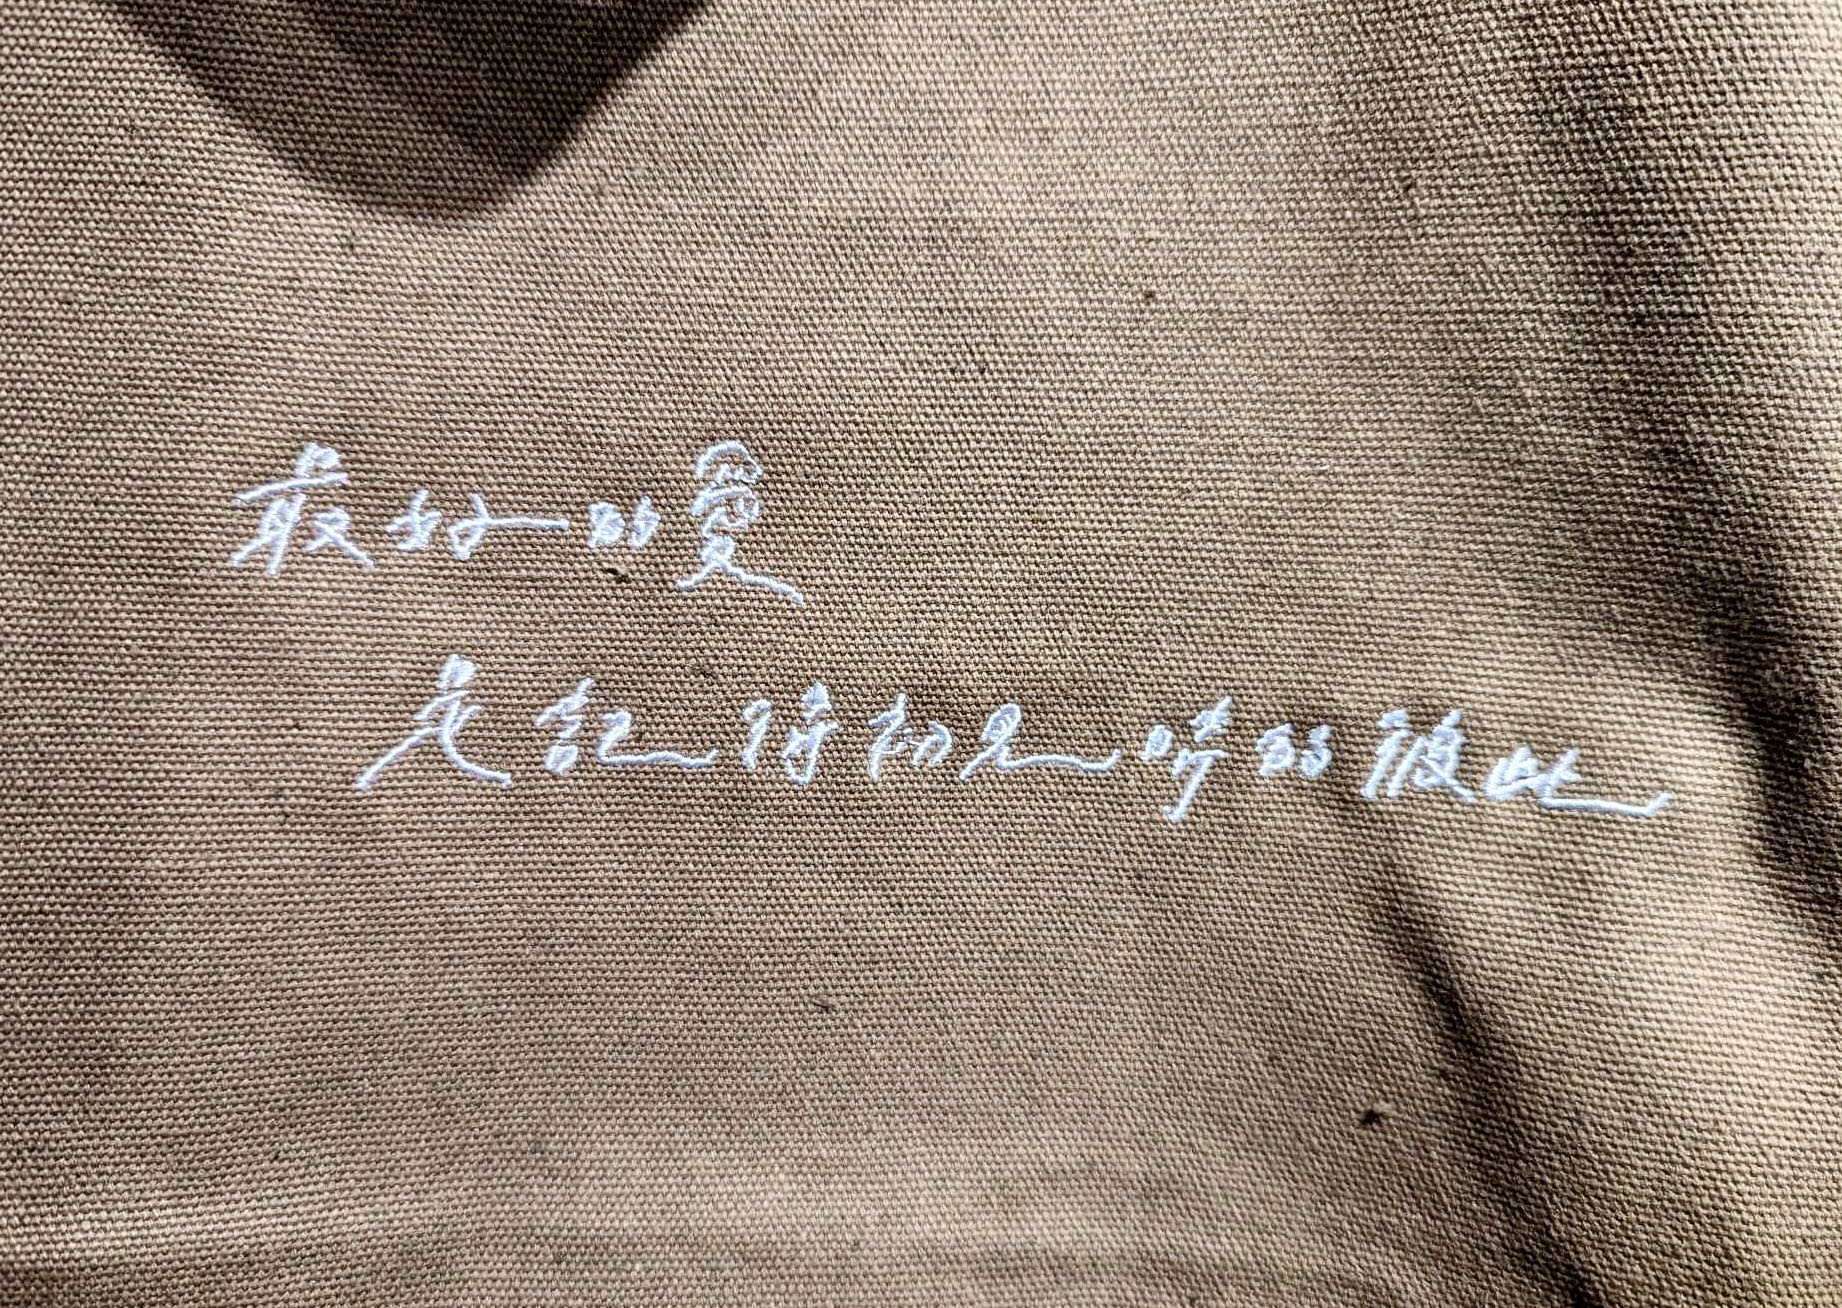 最好的愛
是記得初見時的彼此